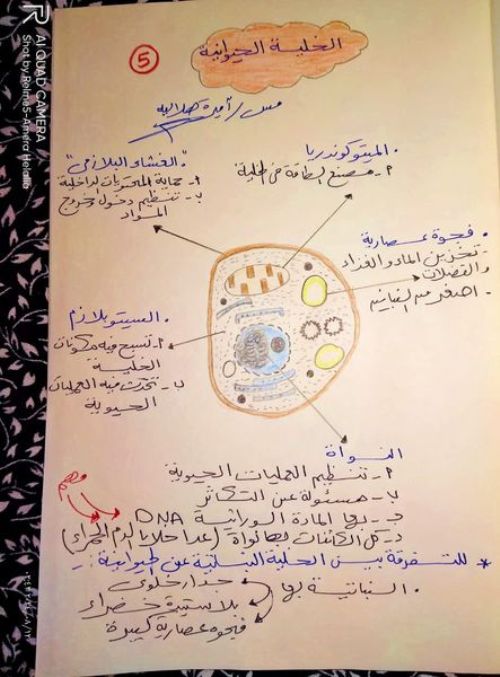 الخلية الحيوانية
5
مس/أميرة
الميتوكوندريا
أ- مصنع الطاقة في الخلية
"الغشاء البلازمي"
أ- حماية المحتويات الداخلية
ب- تنظيم دخول وخروج
المواد
فجوة عصارية
- تخزين الماء والغذاء
والفضلات
- اصغر من النباتية
السيتوبلازم
أ- تسبح فيه مكونات
الخلية
ب- تحدث فيه العمليات
الحيوية
النواة
أ- تنظيم العمليات الحيوية
ب- مسئولة عن التكاثر
ج- بها المادة الوراثية DNA
د- كل الكائنات لها نواة (عدا خلايا الدم الحمراء)
مهم
* للتفرقة بين الخلية النباتية عن الحيوانية :-
النباتية بها
جدار خلوي
بلاستيدة خضراء
فجوة عصارية كبيرة
AI QUAD CAMERA
Shot by Relme5-Amera Helalia